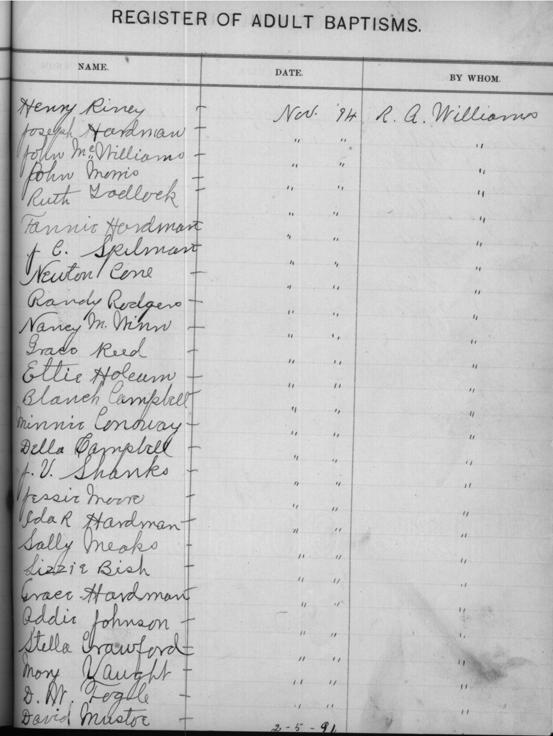 REGISTER OF ADULT BAPTISMS.
NAME. DATE. BY WHOM.
Henry Riney - Nov. '94 R. A. Williams
Joseph Hardman - " " "
John McWilliams - " " "
John Morris - " " "
Ruth - " " "
Fannie Hardman - " " "
J. C. Spilman - " " "
Newton Cone - " " "
Randy Rodgers - " " "
Nancy M. Winn - " " "
Grace Reed - " " "
Ettie Holcum - " " "
Blanch Campbell - " " "
Minnie Conoway - " " "
Della Campbell - " " "
J. V. Shanks - " " "
Jessie Moore - " " "
Ida R Hardman - " " "
Sally Meaks - " " "
Lizzie Bish - " " "
Grace Hardman - " " "
Addie Johnson - " " "
Stella Crawford - " " "
Mary Vaught - " " "
D. W. Fogle - " " "
David Mustoe - 2-5-91 "